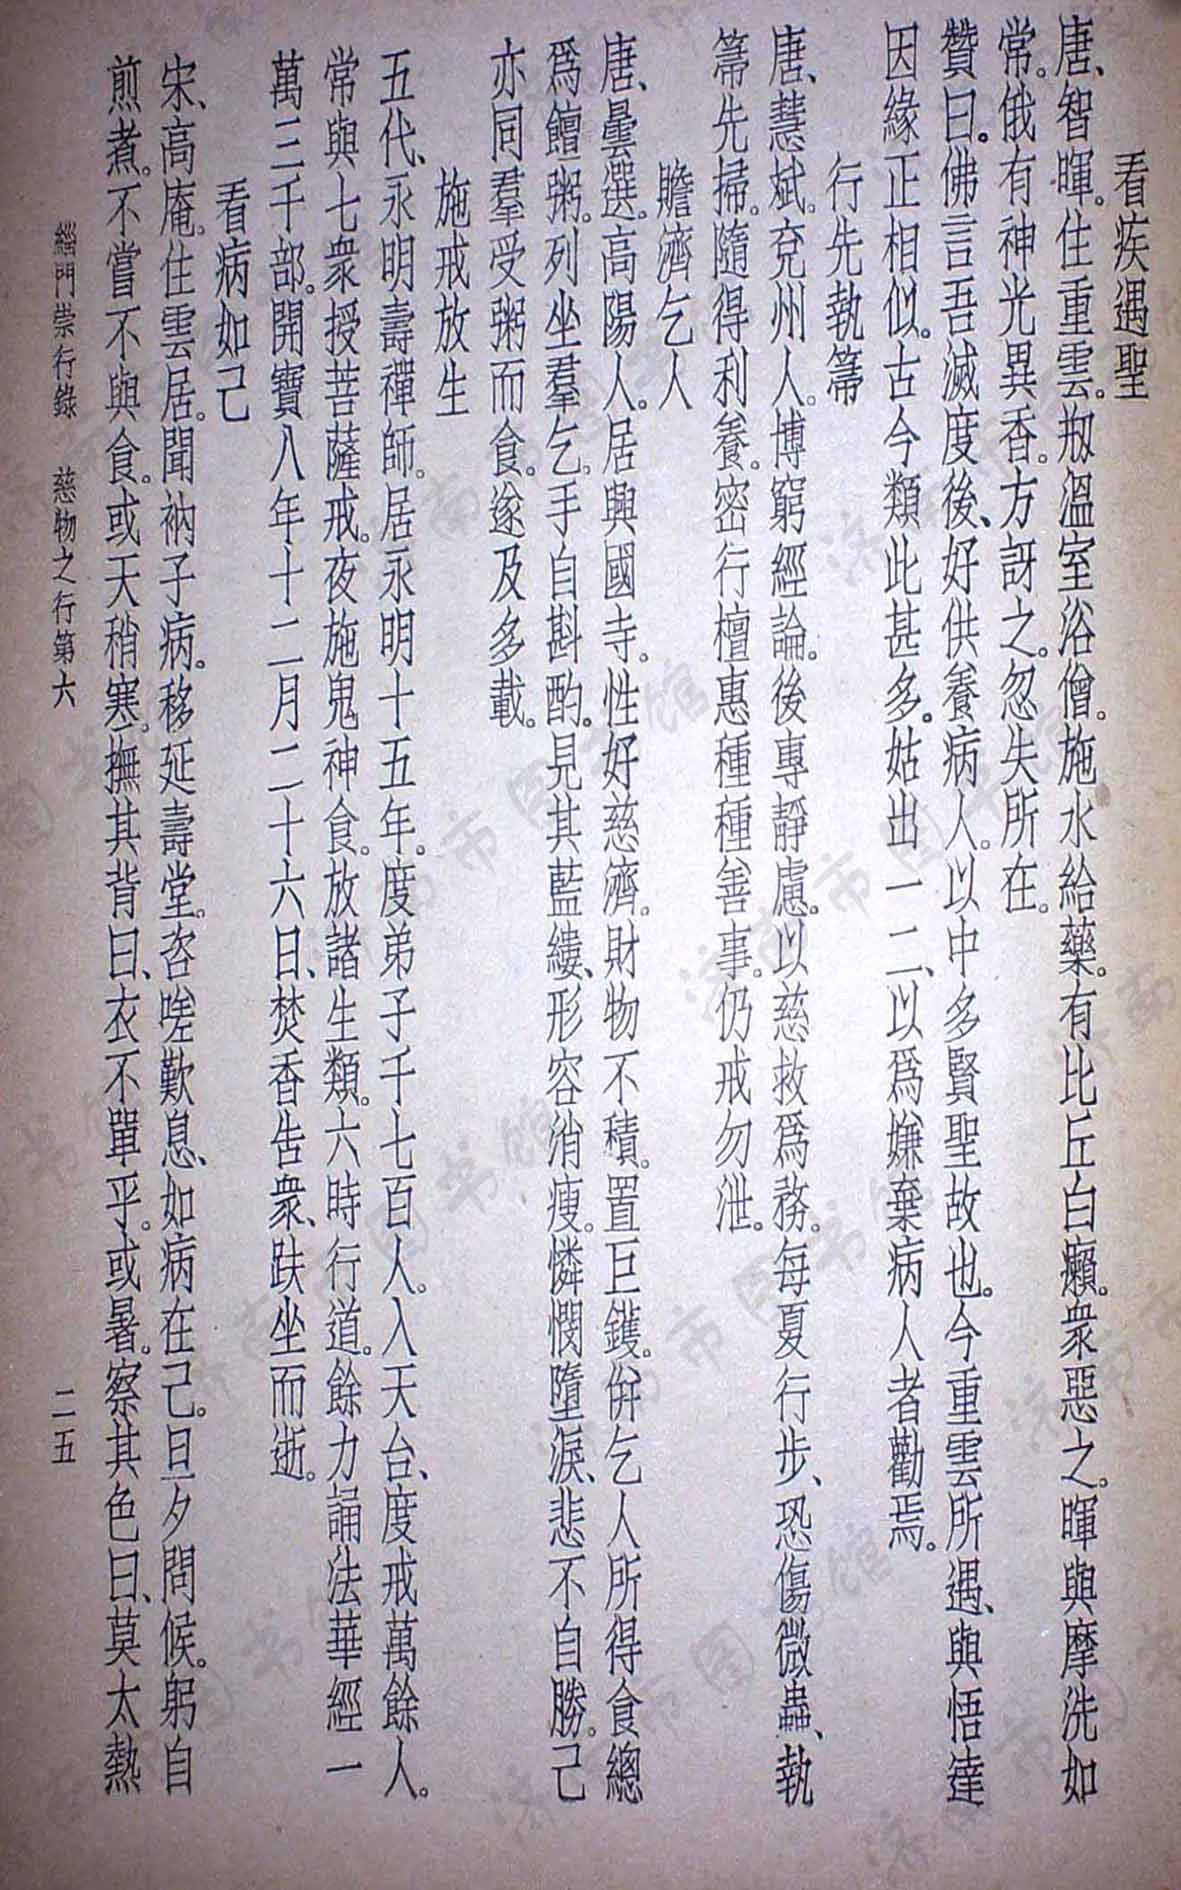 看疾遇聖
唐、智暉。住重雲。剏溫室浴僧。施水給藥。有比丘白癩。衆惡之。暉與摩洗如
常。俄有神光異香。方訝之。忽失所在。
贊曰。佛言吾滅度後、好供養病人。以中多賢聖故也。今重雲所遇、與悟達
因緣正相似。古今類此甚多。姑出一二、以爲嫌棄病人者勸焉。
行先執箒
唐、慧斌。兗州人。博窮經論。後專靜慮。以慈救爲務。每夏行步、恐傷微蟲、執
箒先掃。隨得利養。密行檀惠種種善事。仍戒勿泄。
贍濟乞人
唐、曇選。高陽人。居興國寺。性好慈濟。財物不積。置巨鑊。併乞人所得食總
爲饘粥。列坐羣乞。手自斟酌。見其藍縷、形容消瘦。憐憫墮淚、悲不自勝。己
亦同羣受粥而食。遂及多載。
施戒放生
五代、永明壽禪師。居永明十五年。度弟子千七百人。入天台、度戒萬餘人。
常與七衆授菩薩戒。夜施鬼神食。放諸生類。六時行道。餘力誦法華經一
萬三千部。開寶八年十二月二十六日、焚香告衆、趺坐而逝。
看病如己
宋、高庵。住雲居。聞衲子病。移延壽堂。咨嗟歎息、如病在己。旦夕問候。躬自
煎煮。不嘗不與食。或天稍寒。撫其背曰、衣不單乎。或暑。察其色曰、莫太熱
緇門崇行錄 慈物之行第六 二五
济南市图书馆